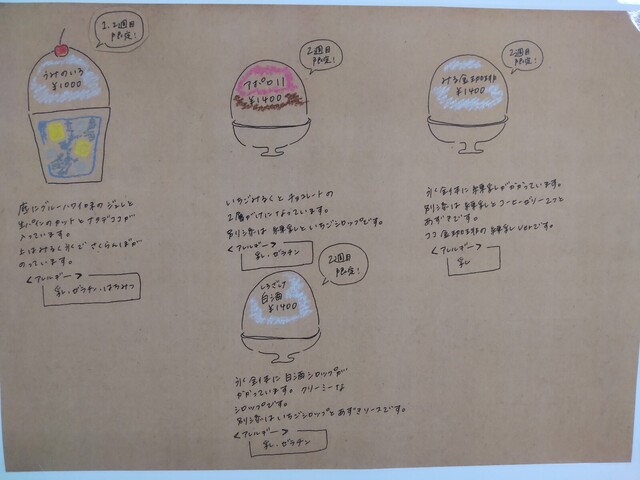 1.2週目
限定！
うみのいろ
¥1000
底にブルーハワイ味のジュレと
生パインのカットとナタデココが
入っています。
上はみるく氷で さくらんぼが
のっています。
＜アレルギー＞
乳・ゼラチン・はちみつ
2週目
限定！
アポロ11
¥1400
いちごみるくと チョコレートの
2層がけになっています。
別添は 練乳といちごシロップです。
＜アレルギー＞
乳・ゼラチン
2週目
限定！
みる金
¥1400
氷全体に練乳がかかっています。
別添は 練乳とコーヒーゼリー2つと
あずきです。
ココ 練乳Verです。
＜アレルギー＞
乳
2週目
限定！
しろざけ
白酒
¥1400
氷全体に 白酒シロップが
かかっています。クリーミーな
シロップです。
別添は いちごシロップと あずきソースです。
＜アレルギー＞
乳・ゼラチン